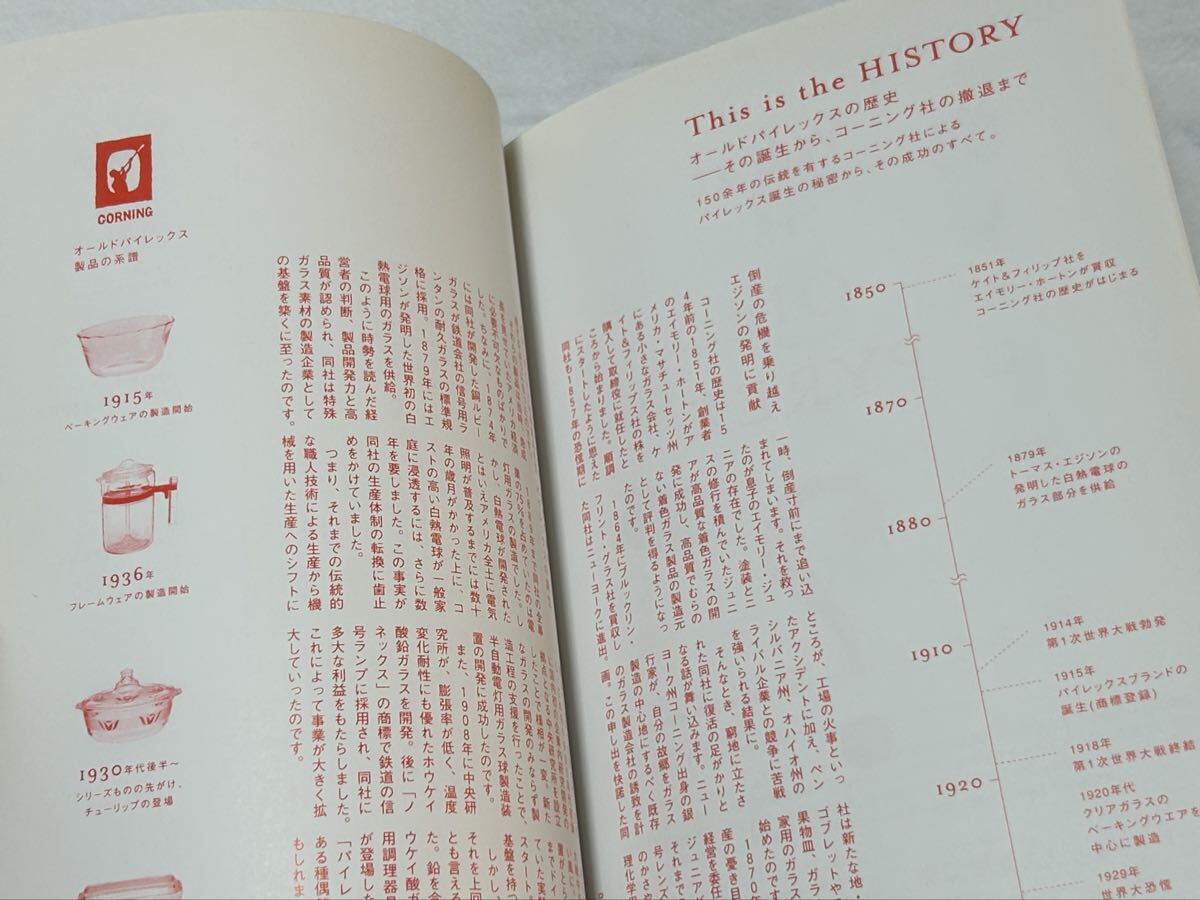 This is the HISTORY
オールドパイレックスの歴史
——その誕生から、コーニング社の撤退まで
150余年の伝統を有するコーニング社による
パイレックス誕生の秘密から、その成功のすべて。
1850
1851年
ケイト&フィリップ社を
エイモリー・ホートンが買収
コーニング社の歴史がはじまる
1870
1879年
トーマス・エジソンの
発明した白熱電球の
ガラス部分を供給
1880
1910
1914年
第1次世界大戦勃発
1915年
パイレックスブランドの
誕生(商標登録)
1918年
第1次世界大戦終結
1920
1920年代
クリアガラスの
ベーキングウェアを
中心に製造
1929年
世界大恐慌
倒産の危機を乗り越え
エジソンの発明に貢献
コーニング社の歴史は15
4年前の1851年、創業者
のエイモリー・ホートンがア
メリカ・マサチューセッツ州
にある小さなガラス会社、ケ
イト&フィリップス社の株を
購入して取締役に就任したと
ころから始まりました。順調
にスタートしたように思えた
同社も1857年の恐慌期に
一時、倒産寸前にまで追い込
まれてしまいます。それを救っ
たのが息子のエイモリー・ジュ
ニアの存在でした。塗装とニ
スの修行を積んでいたジュニ
アが高品質な着色ガラスの開
発に成功し、高品質でむらの
ない着色ガラス製品の製造元
として評判を得るようになっ
たのです。
1864年にブルックリン・
フリント・グラス社を買収し
た同社はニューヨークに進出。
ところが、工場の火事といっ
たアクシデントに加え、ペン
シルバニア州、オハイオ州の
ライバル企業との競争に苦戦
を強いられる結果に。
そんなとき、窮地に立たさ
れた同社に復活の足がかりと
なる話が舞い込みます。ニュー
ヨーク州コーニング出身の銀
行家が、自分の故郷をガラス
製造の中心地にするべく既存
のガラス製造会社の誘致を計
画。この申し出を快諾した同
社は新たな地・
ゴブレットや
果物皿、ガラ
家用のガラス
始めたのです
1870年
産の憂き目
経営を委任
ジュニア
それまで
号レンズ
のかさや
理化学用
CORNING
オールドパイレックス
製品の系譜
1915年
ベーキングウェアの製造開始
1936年
フレームウェアの製造開始
1930年代後半〜
シリーズものの先がけ、
チューリップの登場
に必要不可欠なものばかりで
した。ちなみに、1874年
には同社が開発した銅ルビー
ガラスが鉄道会社の信号用ラ
ンタンの耐久ガラスの標準規
格に採用。1879年にはエ
ジソンが発明した世界初の白
熱電球用のガラスを供給。
このように時勢を読んだ経
営者の判断、製品開発力と高
品質が認められ、同社は特殊
ガラス素材の製造企業として
の基盤を築くに至ったのです。
の75%を占めていたのは電
灯用ガラスの製造でした。し
かし、白熱電球が開発された
とはいえアメリカ全土に電気
照明が普及するまでには数十
年の歳月がかかった上に、コ
ストの高い白熱電球が一般家
庭に浸透するには、さらに数
年を要しました。この事実が
同社の生産体制の転換に歯止
めをかけていました。
つまり、それまでの伝統的
な職人技術による生産から機
械を用いた生産へのシフトに
したことで様相が一変。新た
なガラスの開発のみならず製
造工程の支援を行ったことで、
半自動電灯用ガラス球製造装
置の開発に成功したのです。
また、1908年に中央研
究所が、膨張率が低く、温度
変化耐性にも優れたホウケイ
酸鉛ガラスを開発。後に「ノ
ネックス」の商標で鉄道の信
号ランプに採用され、同社に
多大な利益をもたらしました。
これによって事業が大きく拡
大していったのです。
スタート。
基盤を持つ
しかし、
それを上回
とも言える
た。鉛を含
ウケイ酸ガ
用調理器具
が登場した
「パイレ
ある種偶
もしれま